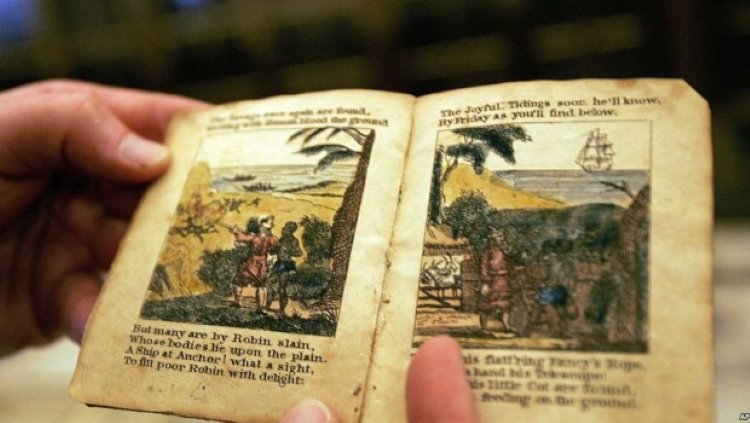 The Savage once again are found,
with human blood the ground
But many are by Robin slain,
Whose bodies lie upon the plain.
A Ship at Anchor! what a sight,
To fill poor Robin with delight:
The Joyful, Tidings soon he'll know,
By Friday as you'll find below.
his flatt'ring Fancy's Hope,
hand his Telescope:
his little Cot are found,
feeding on the ground.
AP